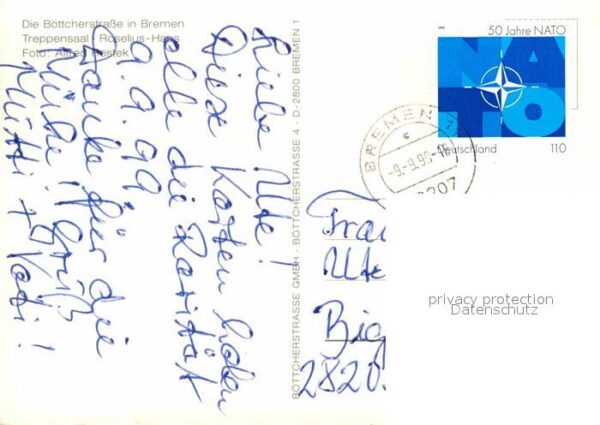 Die Böttcherstraße in Bremen
Treppensaal · Roselius-Haus
Foto: Alfred Rostek
Liebe Ute!
Diese Karten haben
alle die Rarität
9.9.99
Danke für die
Mühe! Gruß
Mutti + Vati!
BÖTTCHERSTRASSE GMBH · BÖTTCHERSTRASSE 4 · D-2800 BREMEN 1
50 Jahre NATO
NATO
Deutschland 110
BREMEN
-9.-9.99-
Frau
Ute
Big
2820
privacy protection
Datenschutz